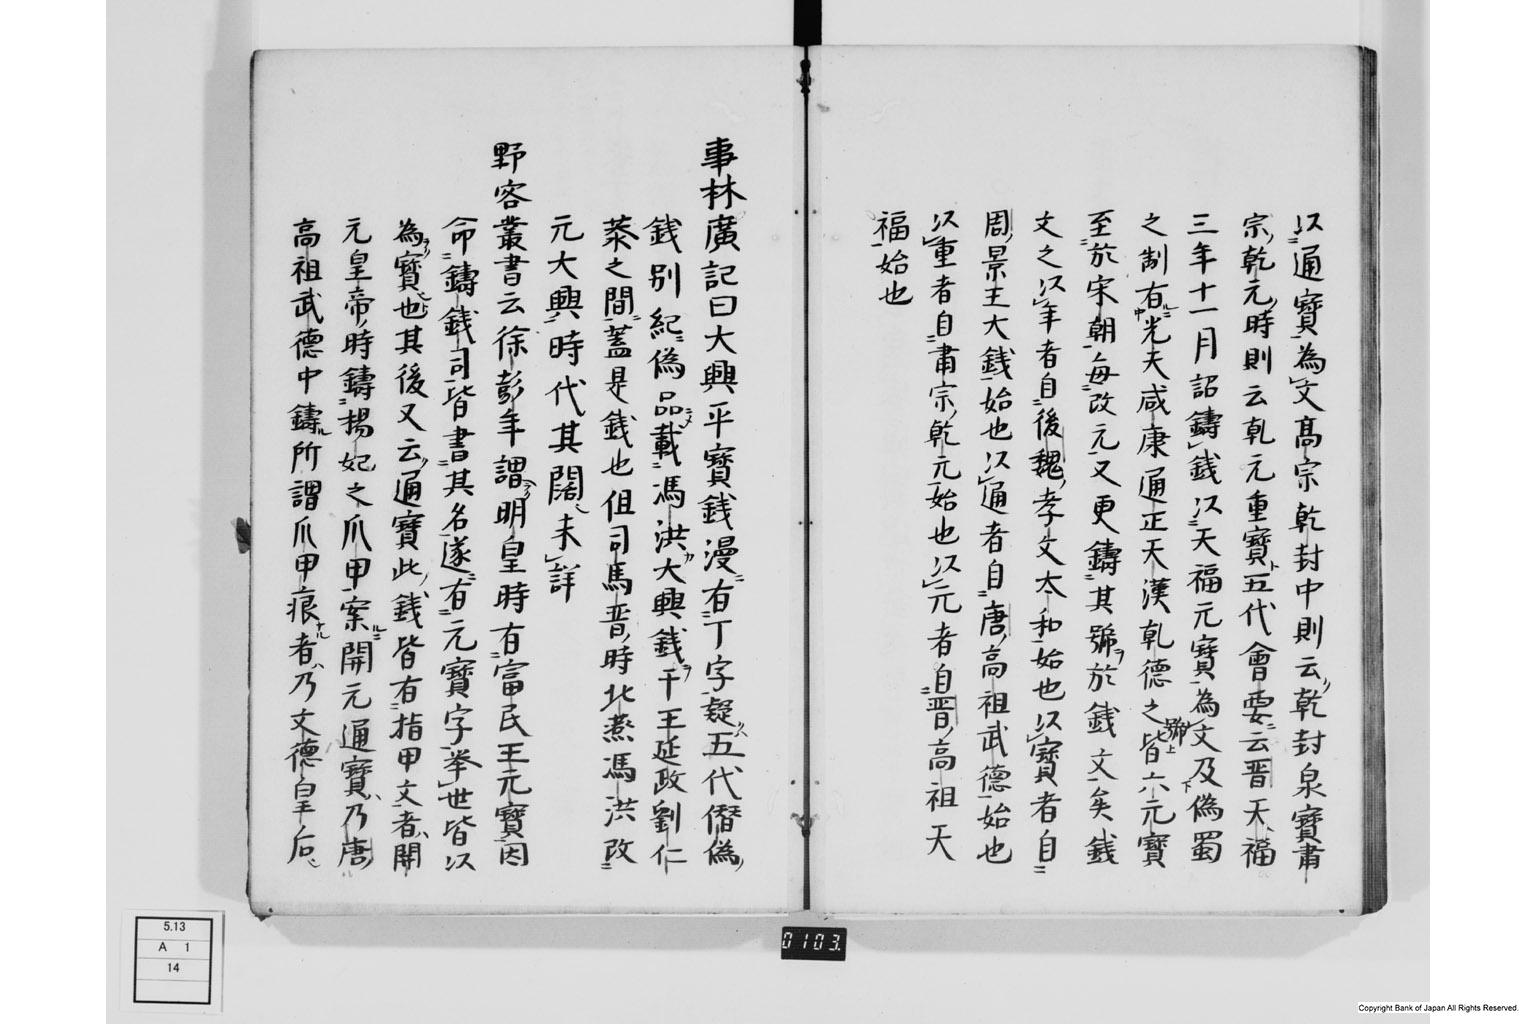 以通寳為文髙宗乾封中則云乾封泉寳肅
宗乾元時則云乹元重寳五代會要云晋天福
三年十一月詔鑄錢以天福元寳為文及偽蜀
之制有光天咸康通正天漢乹德之號皆六元寳
至於宋朝每改元又更鑄其號於錢文矣錢
文之以年者自後魏孝文太和始也以寳者自
周景王大錢始也以通者自唐高祖武德始也
以重者自肅宗乾元始也以元者自晋高祖天
福始也
事林廣記曰大興平寳錢漫有丁字疑五代僭偽
錢別紀偽品載馮洪大興錢于王延政劉仁
恭之間蓋是錢也但司馬晋時北燕馮洪改
元大興時代其闊未詳
野客叢書云徐彭年謂明皇時有富民王元寳因
命鑄錢司皆書其名遂有元寳字挙世皆以
為寳也其後又云通寳此錢皆有指甲文者開
元皇帝時鑄楊妃之爪甲案開元通寳乃唐
高祖武德中鑄所謂爪甲痕者乃文德皇后
5.13
A 1
14
0103.
Copyright Bank of Japan All Rights Reserved.